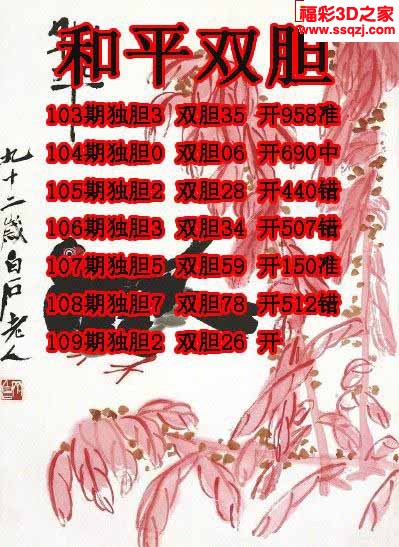 福彩3D之家
www.ssqzj.com
和平双胆
103期独胆3 双胆35 开958准
104期独胆0 双胆06 开690中
105期独胆2 双胆28 开440错
106期独胆3 双胆34 开507错
107期独胆5 双胆59 开150准
108期独胆7 双胆78 开512错
109期独胆2 双胆26 开
九十二岁白石老人